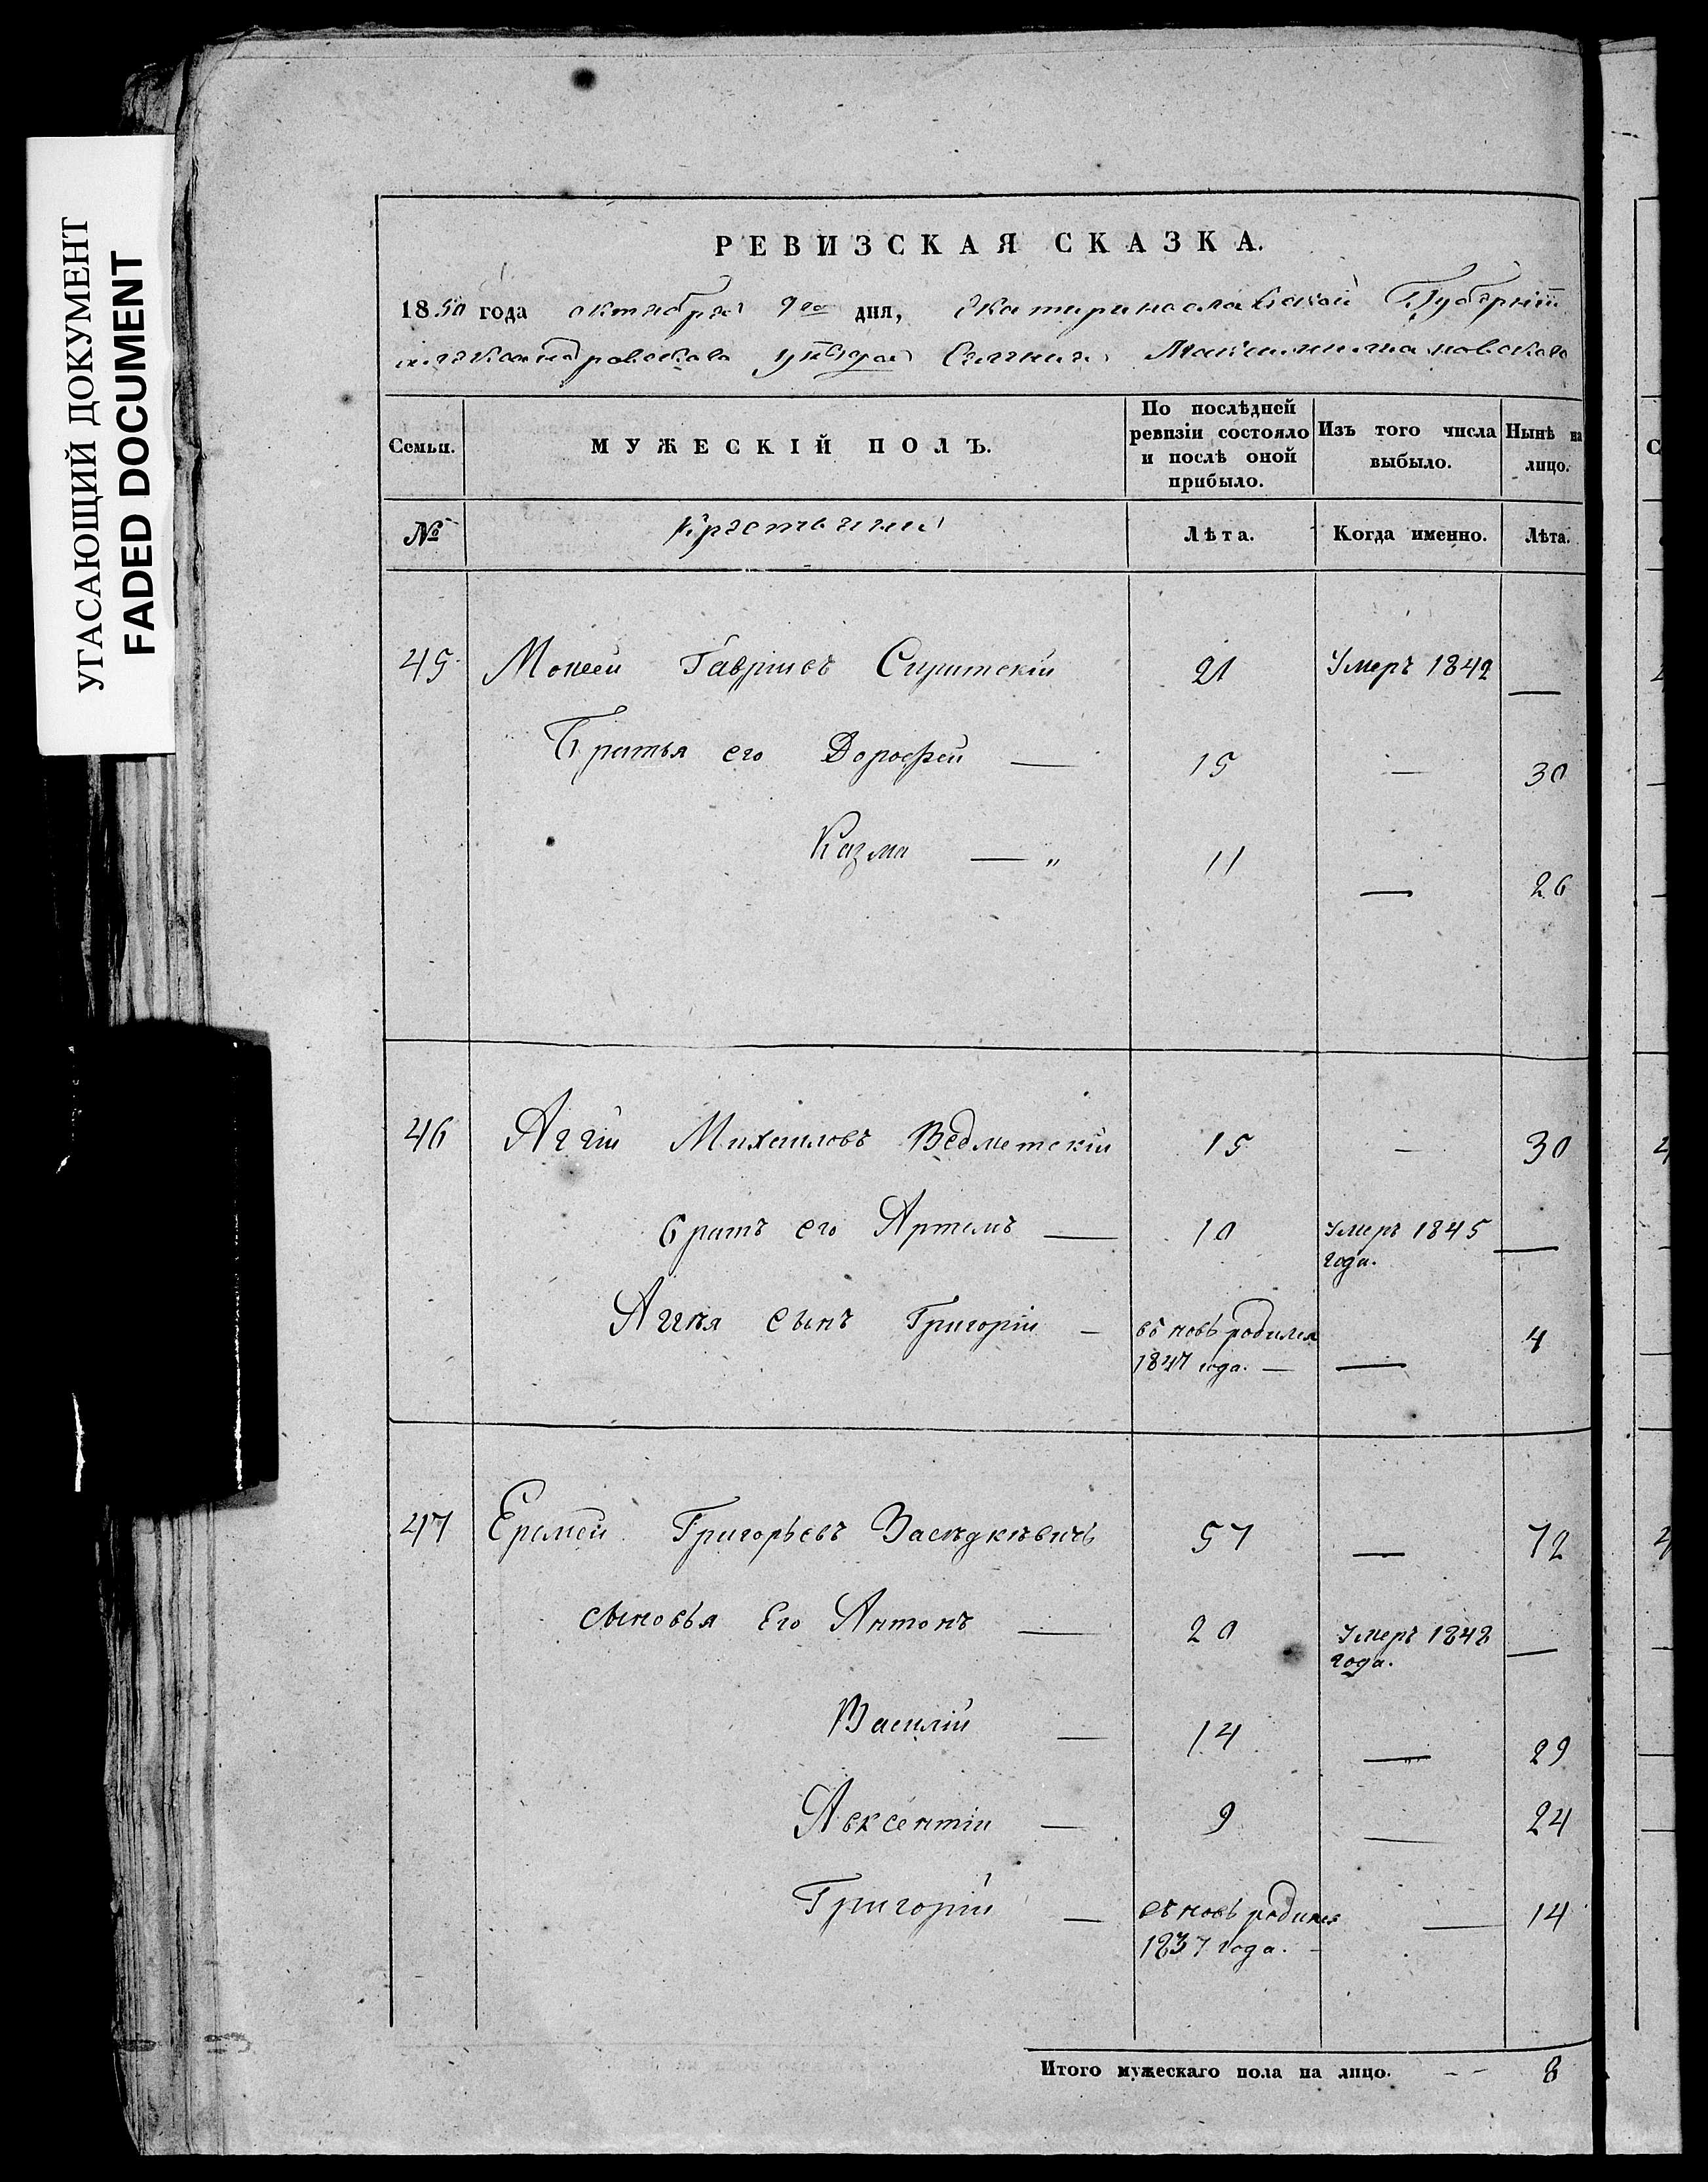 УГАСАЮЩИЙ ДОКУМЕНТ
FADED DOCUMENT
РЕВИЗСКАЯ СКАЗКА.
1850 года октября 9го дня, Екатеринославской Губерніи
Александровскаго уѣзда Селенія Максимильяновскаго
Семьи.
МУЖЕСКІЙ ПОЛЪ.
По послѣдней ревизіи состояло и послѣ оной прибыло.
Изъ того числа выбыло.
Нынѣ на лицо.
№ Крестьяне Лѣта. Когда именно. Лѣта.
45 Моисей Гавриловъ 21 Умеръ 1842 —
Братья его Дорофей — 15 — 30
Казма — „ 11 — 26
46 Аггій Михаиловъ Ведметскій 15 — 30
братъ его Артемъ — 10 Умеръ 1845 года. —
Аггѣя сынъ Григорій — въновь родился 1847 года. — — 4
47 Еремей Григорьевъ 57 — 72
сыновья Его Антонъ — 20 Умеръ 1848 года. —
Василій — 14 — 29
Авксентій — 9 — 24
Григорій — въновь родился 1837 года. — — 14
Итого мужескаго пола на лицо. - - 8